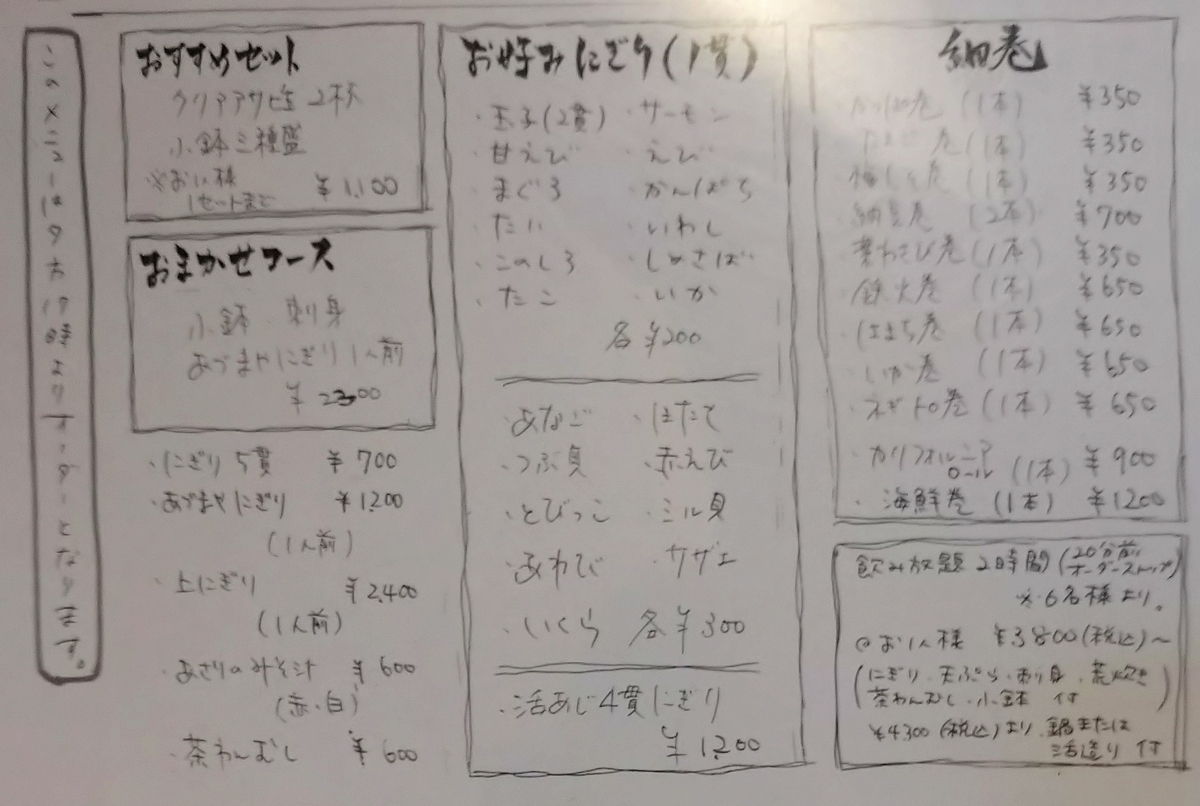 このメニューは夕方17時よりオーダーとなります。
おすすめセット
クリアアサヒ生 2杯
小鉢三種盛
※お1人様 ¥1,100
1セットまで
おまかせコース
小鉢 刺身
あづまやにぎり1人前
¥2300
・にぎり5貫 ¥700
・あづまやにぎり ¥1,200
(1人前)
・上にぎり ¥2,400
(1人前)
・あさりのみそ汁 ¥600
(赤・白)
・茶わんむし ¥600
お好みにぎり(1貫)
・玉子(2貫) ・サーモン
・甘えび ・えび
・まぐろ ・かんぱち
・たい ・いわし
・このしろ ・しめさば
・たこ ・いか
各¥200
・あなご ・ほたて
・つぶ貝 ・赤えび
・とびっこ ・ミル貝
・あわび ・サザエ
・いくら 各¥300
・活あじ4貫にぎり
¥1,200
細巻
かっぱ巻 (1本) ¥350
たまご巻 (1本) ¥350
梅しそ巻 (1本) ¥350
納豆巻 (2本) ¥700
葉わさび巻 (1本) ¥350
鉄火巻 (1本) ¥650
はまち巻 (1本) ¥650
いか巻 (1本) ¥650
ネギトロ巻 (1本) ¥650
・カリフォルニア
ロール (1本) ¥900
・海鮮巻 (1本) ¥1200
飲み放題 2時間 (20分前
オーダーストップ)
※6名様より。
@お1人様 ¥3800(税込)〜
(にぎり・天ぷら・刺身・荒炊き
茶わんむし・小鉢 付)
¥4300(税込)より 鍋または
活造り 付